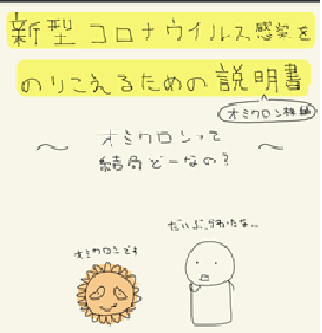 新型コロナウイルス感染を
のりこえるための説明書
オミクロン株編
～ オミクロンって ～
結局どーなの？
オミクロンです
だいぶ